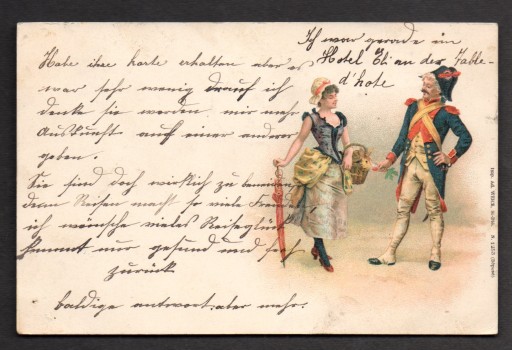 Ich war gerade im
Hotel Eli an der Table-
d'hote
Habe ihre karte erhalten aber es
war sehr wenig drauf ich
denke sie werden mir mehr
Auskunft auf einer anderen
geben.
Sie sind doch wirklich zu
denn Reisen macht so viele Freuden
ich wünsche vieles Reiseglück
kommt nur gesund und
zurück
baldige antwort aber mehr.